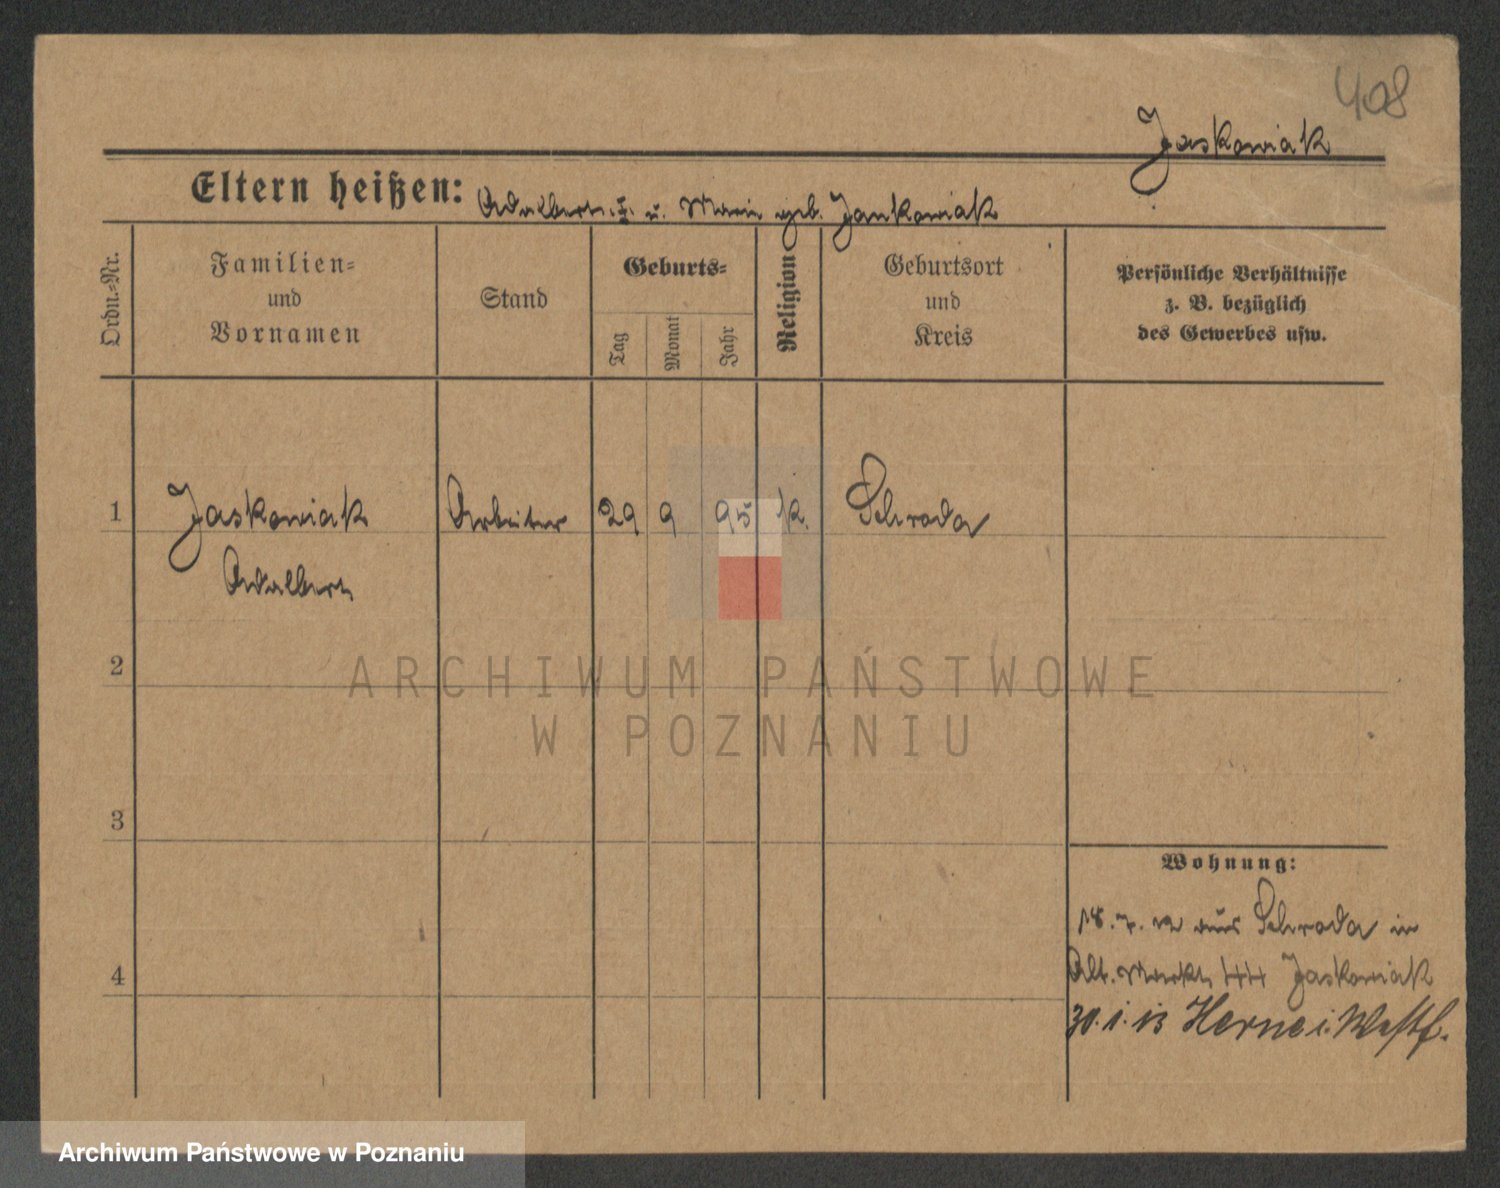 408
Jaskowiak
Eltern heißen: Adalbert u. Marie geb. Jankowiak
Ordn.-Nr.
Familien- und Vornamen
Stand
Geburts-
Tag
Monat
Jahr
Religion
Geburtsort und Kreis
Persönliche Verhältnisse
z. B. bezüglich
des Gewerbes usw.
1 Jaskowiak Arbeiter 29 9 95 k. Schroda
Adalbert
2
ARCHIWUM PAŃSTWOWE
W POZNANIU
3
Wohnung:
18.7.12 aus Schroda in
4
Alt. Markt 44 Jaskowiak
30.1.13 Herne i. Westf.
Archiwum Państwowe w Poznaniu